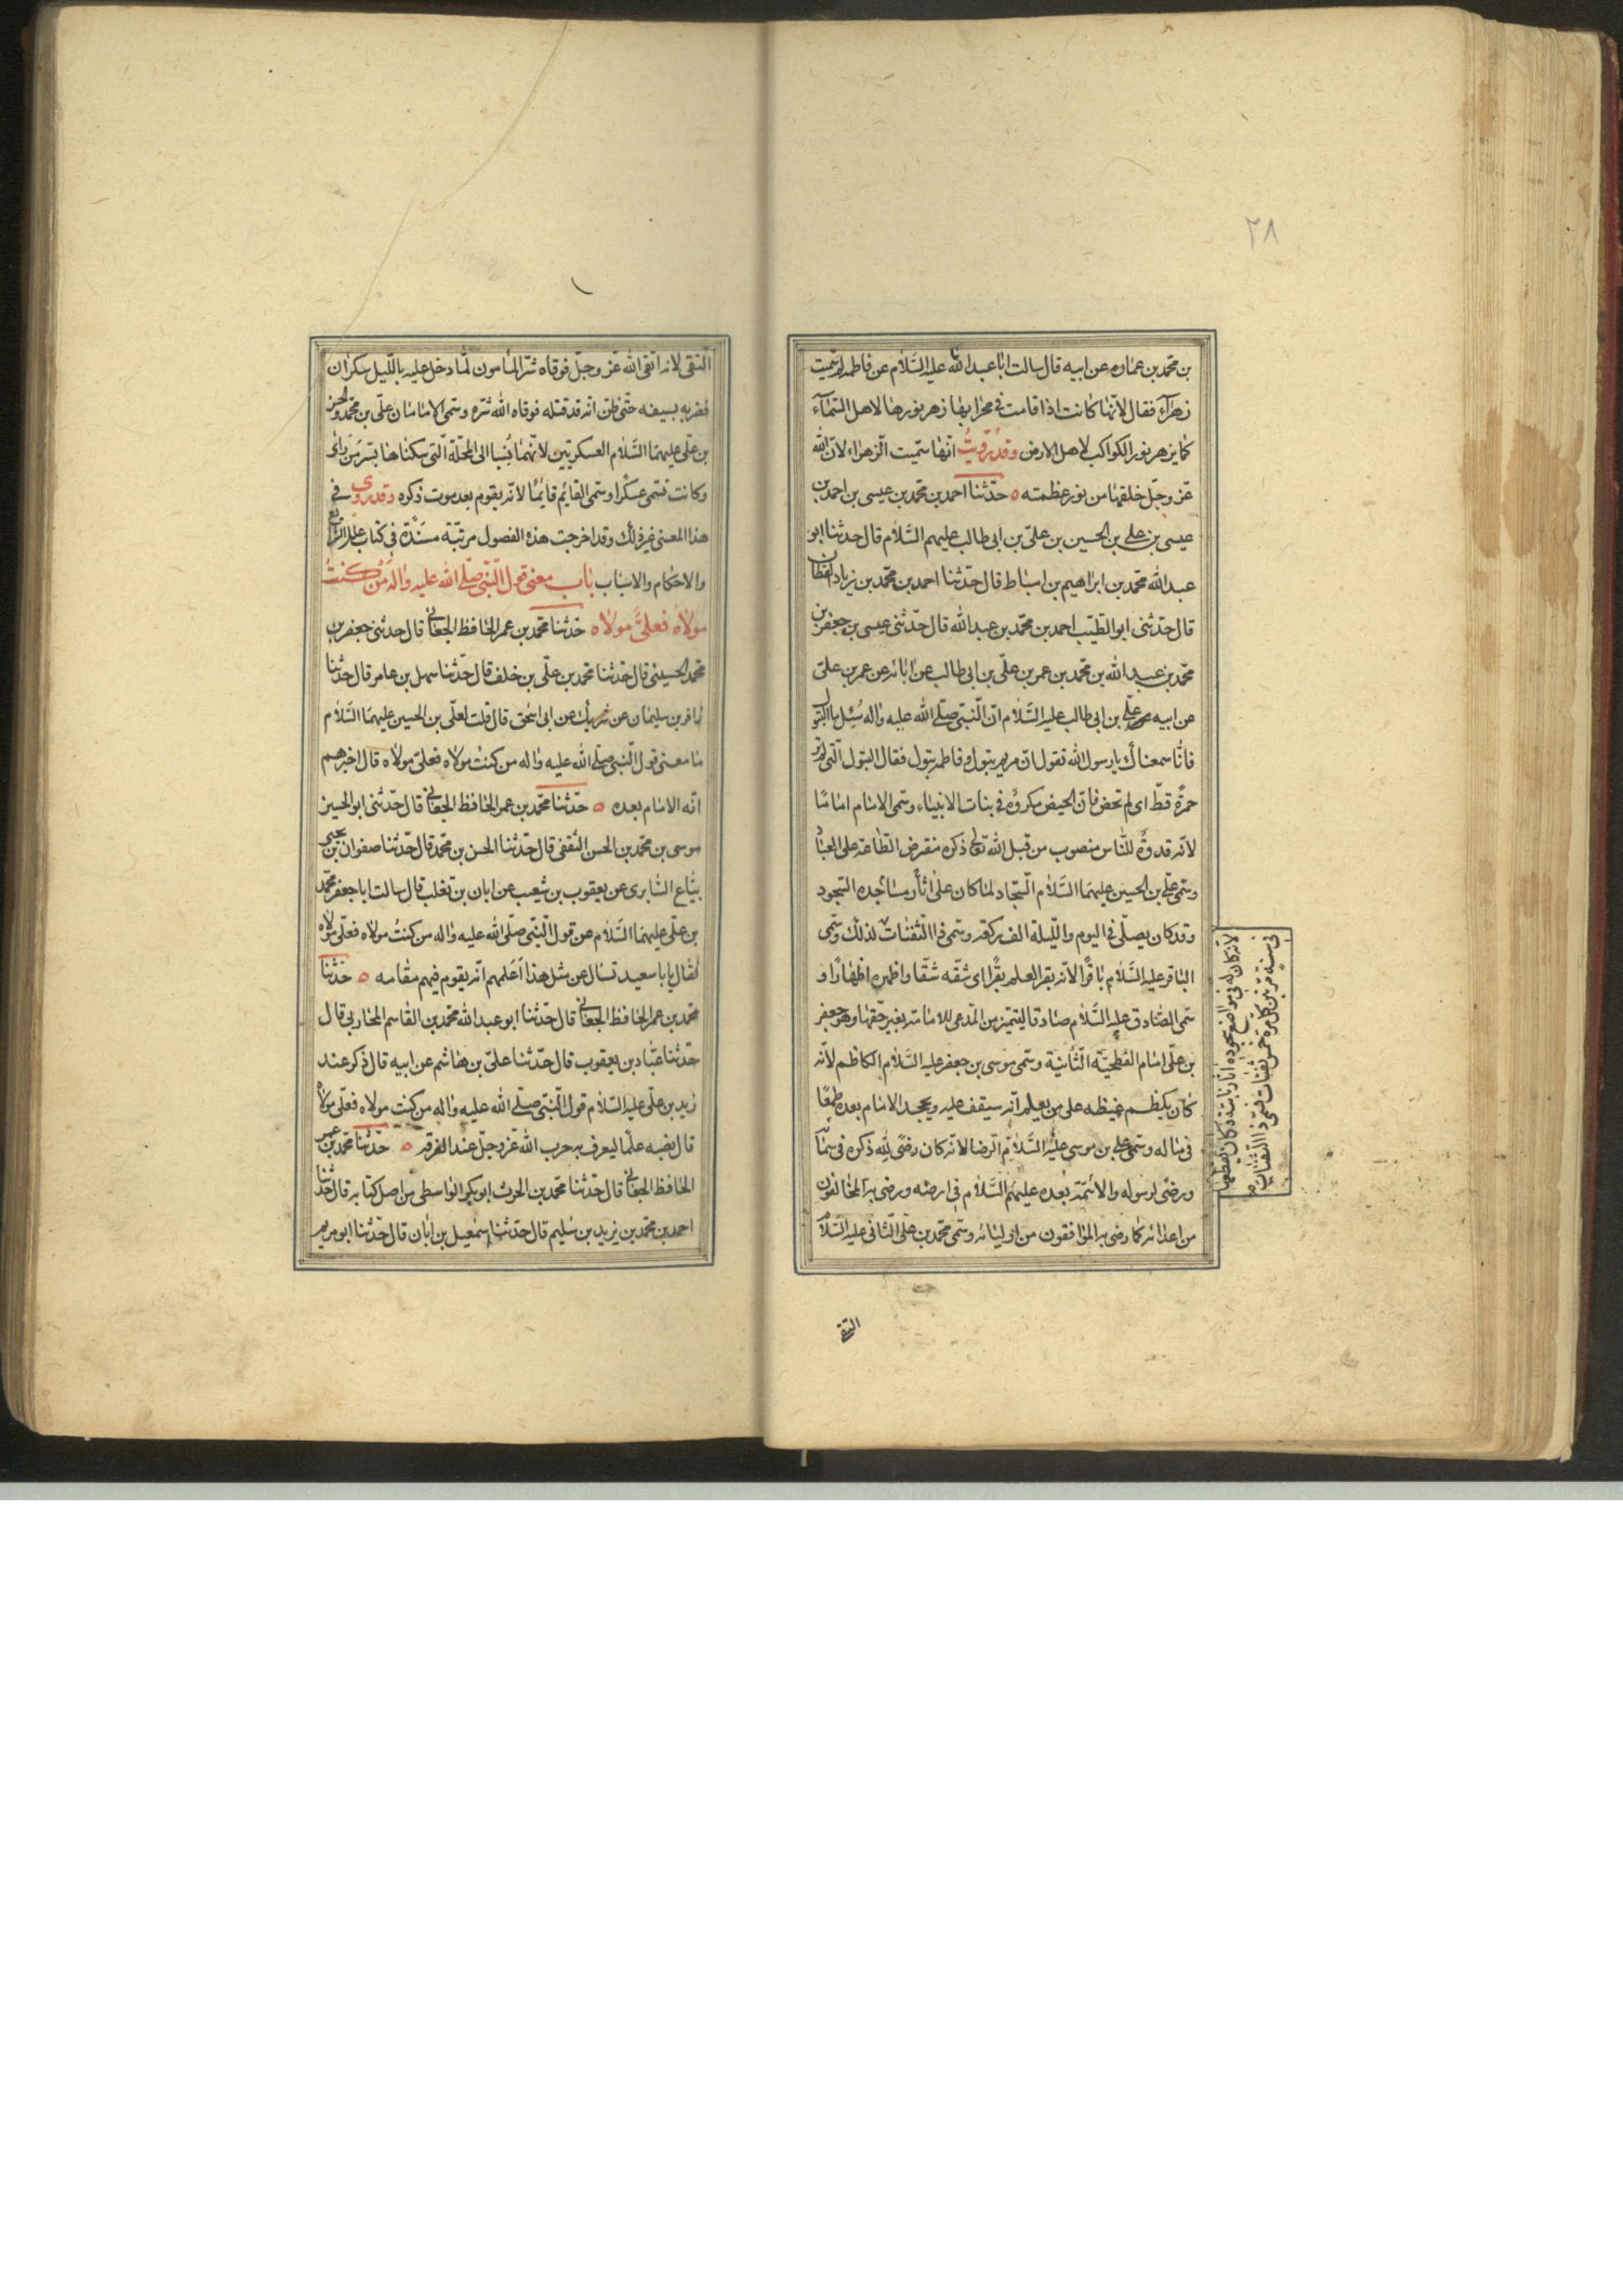 ٢٨
بن محمد بن عماره عن ابيه قال سالت ابا عبد الله عليه السلام عن فاطمه لم سميت
زهرآء فقال لانها كانت اذا قامت في محرابها زهر نورها لاهل السمآء
كما يزهر نور الكواكب لاهل الارض وقد رويت انها سميت الزهراء لان الله
عز وجل خلقها من نور عظمته ه حدثنا احمد بن محمد بن عيسى بن احمد بن
عيسى بن علي بن الحسين بن علي بن ابى طالب عليهم السلام قال حدثنا ابو
عبد الله محمد بن ابراهيم بن اسباط قال حدثنا احمد بن محمد بن زياد القطان
قال حدثنى ابو الطيب احمد بن محمد بن عبد الله قال حدثنى عيسى بن جعفر بن
محمد بن عبد الله بن محمد بن عمر بن علي بن ابى طالب عن ابائه عن عمر بن على
عن ابيه علي بن ابى طالب عليه السلام ان النبي صلى الله عليه واله سُئل ما البتول
فانا سمعناك يا رسول الله تقول ان مريم بتول وفاطمه بتول فقال البتول التى لم تر
حمرة قط اى لم تحض فان الحيض مكروه في بنات الانبياء وسمى الامام اماما
لانه قدوة للناس منصوب من قبل الله تعالى ذكره مفترض الطاعة على العباد
وسمى علي بن الحسين عليهما السلام السجاد لما كان على اثار مساجده السجود
وقد كان يصلى في اليوم والليلة الف ركعه وسمى ذا الثفنات لذلك وسمى
الباقر عليه السلام باقرا لانه بقر العلم بقرا اى شقه شقا واظهره اظهارا و
سمى الصادق عليه السلام صادقا ليتميز من المدعى للامامة بغير حقها وهو جعفر
بن علي امام الفطحية الثانية وسمى موسى بن جعفر عليه السلام الكاظم لانه
كان يكظم غيظه على من يعلم انه سيقف عليه ويجحد الامام بعده طمعا
فى ماله وسمى على بن موسى عليه السلام الرضا لانه كان رضى لله ذكره فى سمائه
ورضى لرسوله والائمة بعده عليهم السلام فى ارضه ورضى به المخالفون
من اعدائه كما رضى به الموافقون من اوليائه وسمى محمد بن على الثانى عليه السلام
لانه كان له فى مواضع سجوده اثار ناتئة وكان يقطعها
فى سنة مرتين كل مرة خمس ثفنات فسمى ذا الثفنات
التقى
التقى لانه اتقى الله عز وجل فوقاه شر المامون لما دخل عليه بالليل سكران
فضربه بسيفه حتى ظن انه قد قتله فوقاه الله شره وسمى الامامان على بن محمد والحسن
بن على عليهما السلام العسكريين لانهما نُسبا الى المحلة التى سكناها بسر من راى
وكانت تسمى عسكرا وسمى القائم قائما لانه يقوم بعد موت ذكره وقد روى فى
هذا المعنى غير ذلك وقد اخرجت هذه الفصول مرتبة مسندة فى كتاب علل الشرايع
والاحكام والاسباب باب معنى قول النبى صلى الله عليه واله من كنت
مولاه فعلى مولاه حدثنا محمد بن عمر الحافظ الجعابى قال حدثنى جعفر بن
محمد الحسينى قال حدثنا محمد بن على بن خلف قال حدثنا سهل بن عامر قال حدثنا
زافر بن سليمان عن شريك عن ابى اسحق قال قلت لعلى بن الحسين عليهما السلام
ما معنى قول النبى صلى الله عليه واله من كنت مولاه فعلى مولاه قال اخبرهم
انه الامام بعده ه حدثنا محمد بن عمر الحافظ الجعابى قال حدثنى ابو الحسين
موسى بن محمد بن الحسن الثقفى قال حدثنا الحسن بن محمد قال حدثنا صفوان بن يحيى
بياع السابرى عن يعقوب بن شعيب عن ابان بن تغلب قال سالت ابا جعفر محمد
بن على عليهما السلام عن قول النبى صلى الله عليه واله من كنت مولاه فعلى مولاه
فقال يا با سعيد تسال عن مثل هذا اعلمهم انه يقوم فيهم مقامه ه حدثنا
محمد بن عمر الحافظ الجعابى قال حدثنا ابو عبد الله محمد بن القاسم المحاربى قال
حدثنا عباد بن يعقوب قال حدثنا على بن هاشم عن ابيه قال ذكر عند
زيد بن على عليه السلام قول النبى صلى الله عليه واله من كنت مولاه فعلى مولاه
قال نصبه علما ليعرف به حزب الله عز وجل عند الفرقه ه حدثنا محمد بن عمر
الحافظ الجعابى قال حدثنا محمد بن الحرث ابو بكر الواسطى من اصل كتابه قال حدثنا
احمد بن محمد بن يزيد بن سليم قال حدثنا اسمعيل بن ابان قال حدثنا ابو مريم